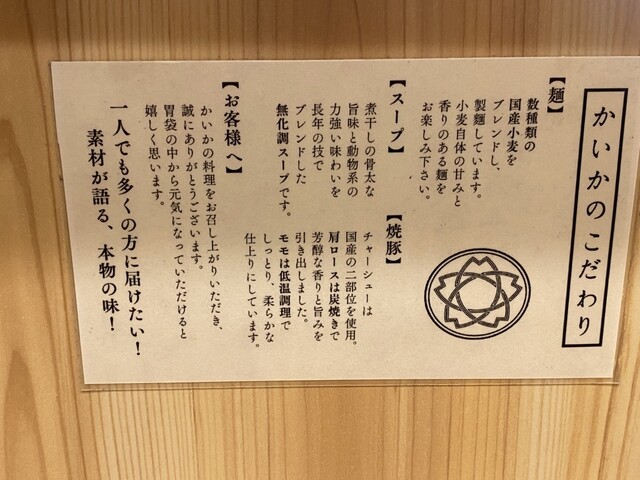 かいかのこだわり
【麺】
数種類の
国産小麦を
ブレンドし、
製麺しています。
小麦自体の甘みと
香りのある麺を
お楽しみ下さい。
【スープ】
煮干しの骨太な
旨味と動物系の
力強い味わいを
長年の技で
ブレンドした
無化調スープです。
【焼豚】
チャーシューは
国産の二部位を使用。
肩ロースは炭焼きで
芳醇な香りと旨みを
引き出しました。
モモは低温調理で
しっとり、柔らかな
仕上りにしています。
【お客様へ】
かいかの料理をお召し上がりいただき、
誠にありがとうございます。
胃袋の中から元気になっていただけると
嬉しく思います。
一人でも多くの方に届けたい！
素材が語る、本物の味！